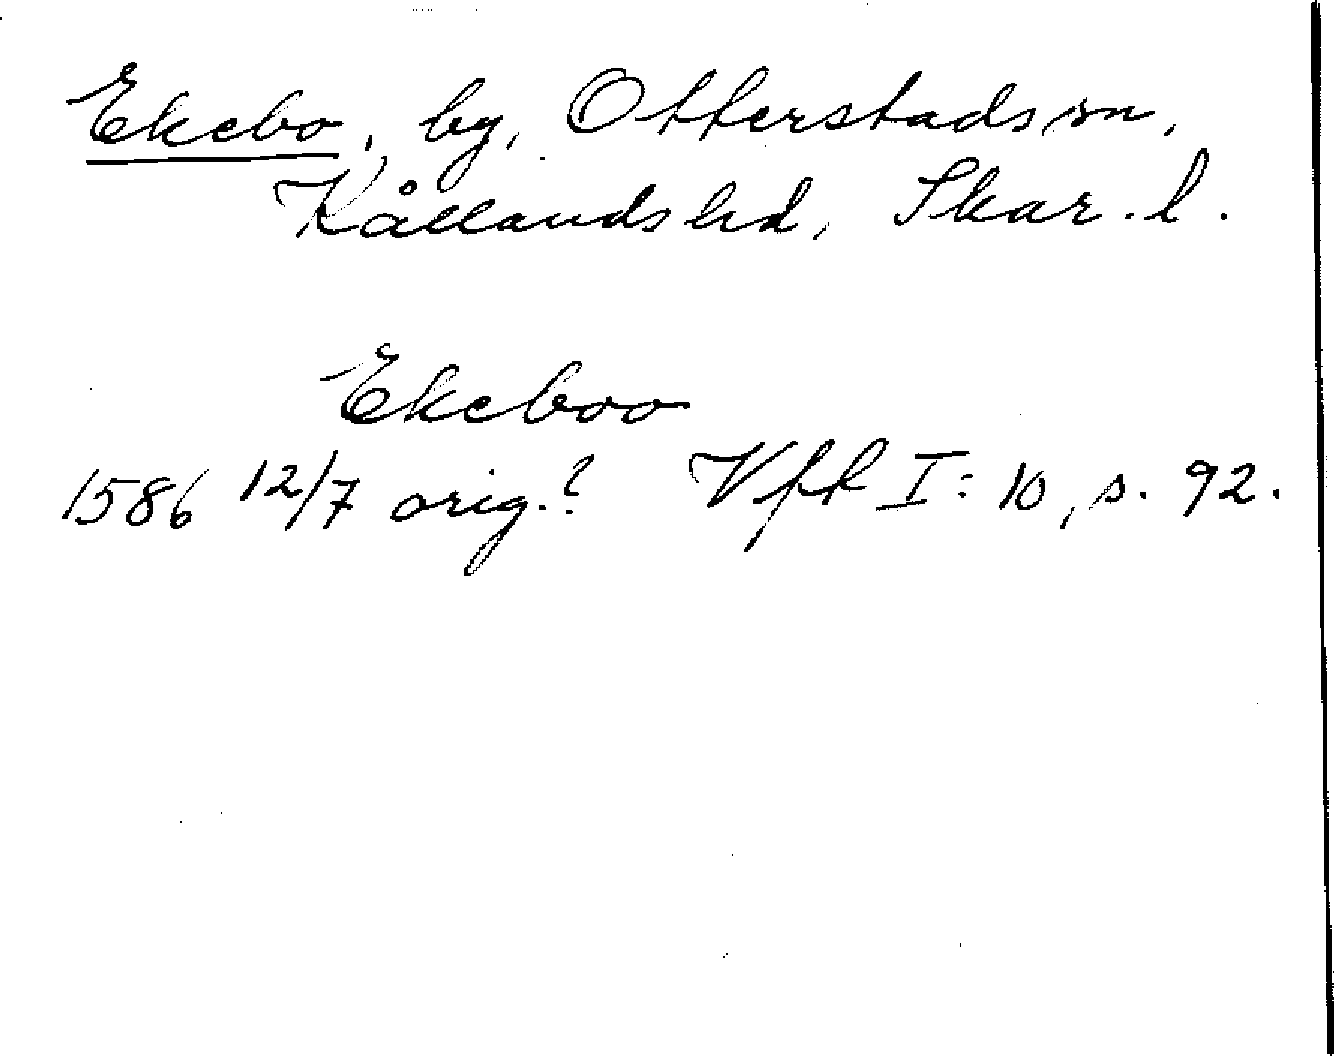 Ekebo, by, Otterstads sn,
Kållands hd, Skar. l.
Ekeboo
1586 12/7 orig.? Vfr I: 10, s. 92.